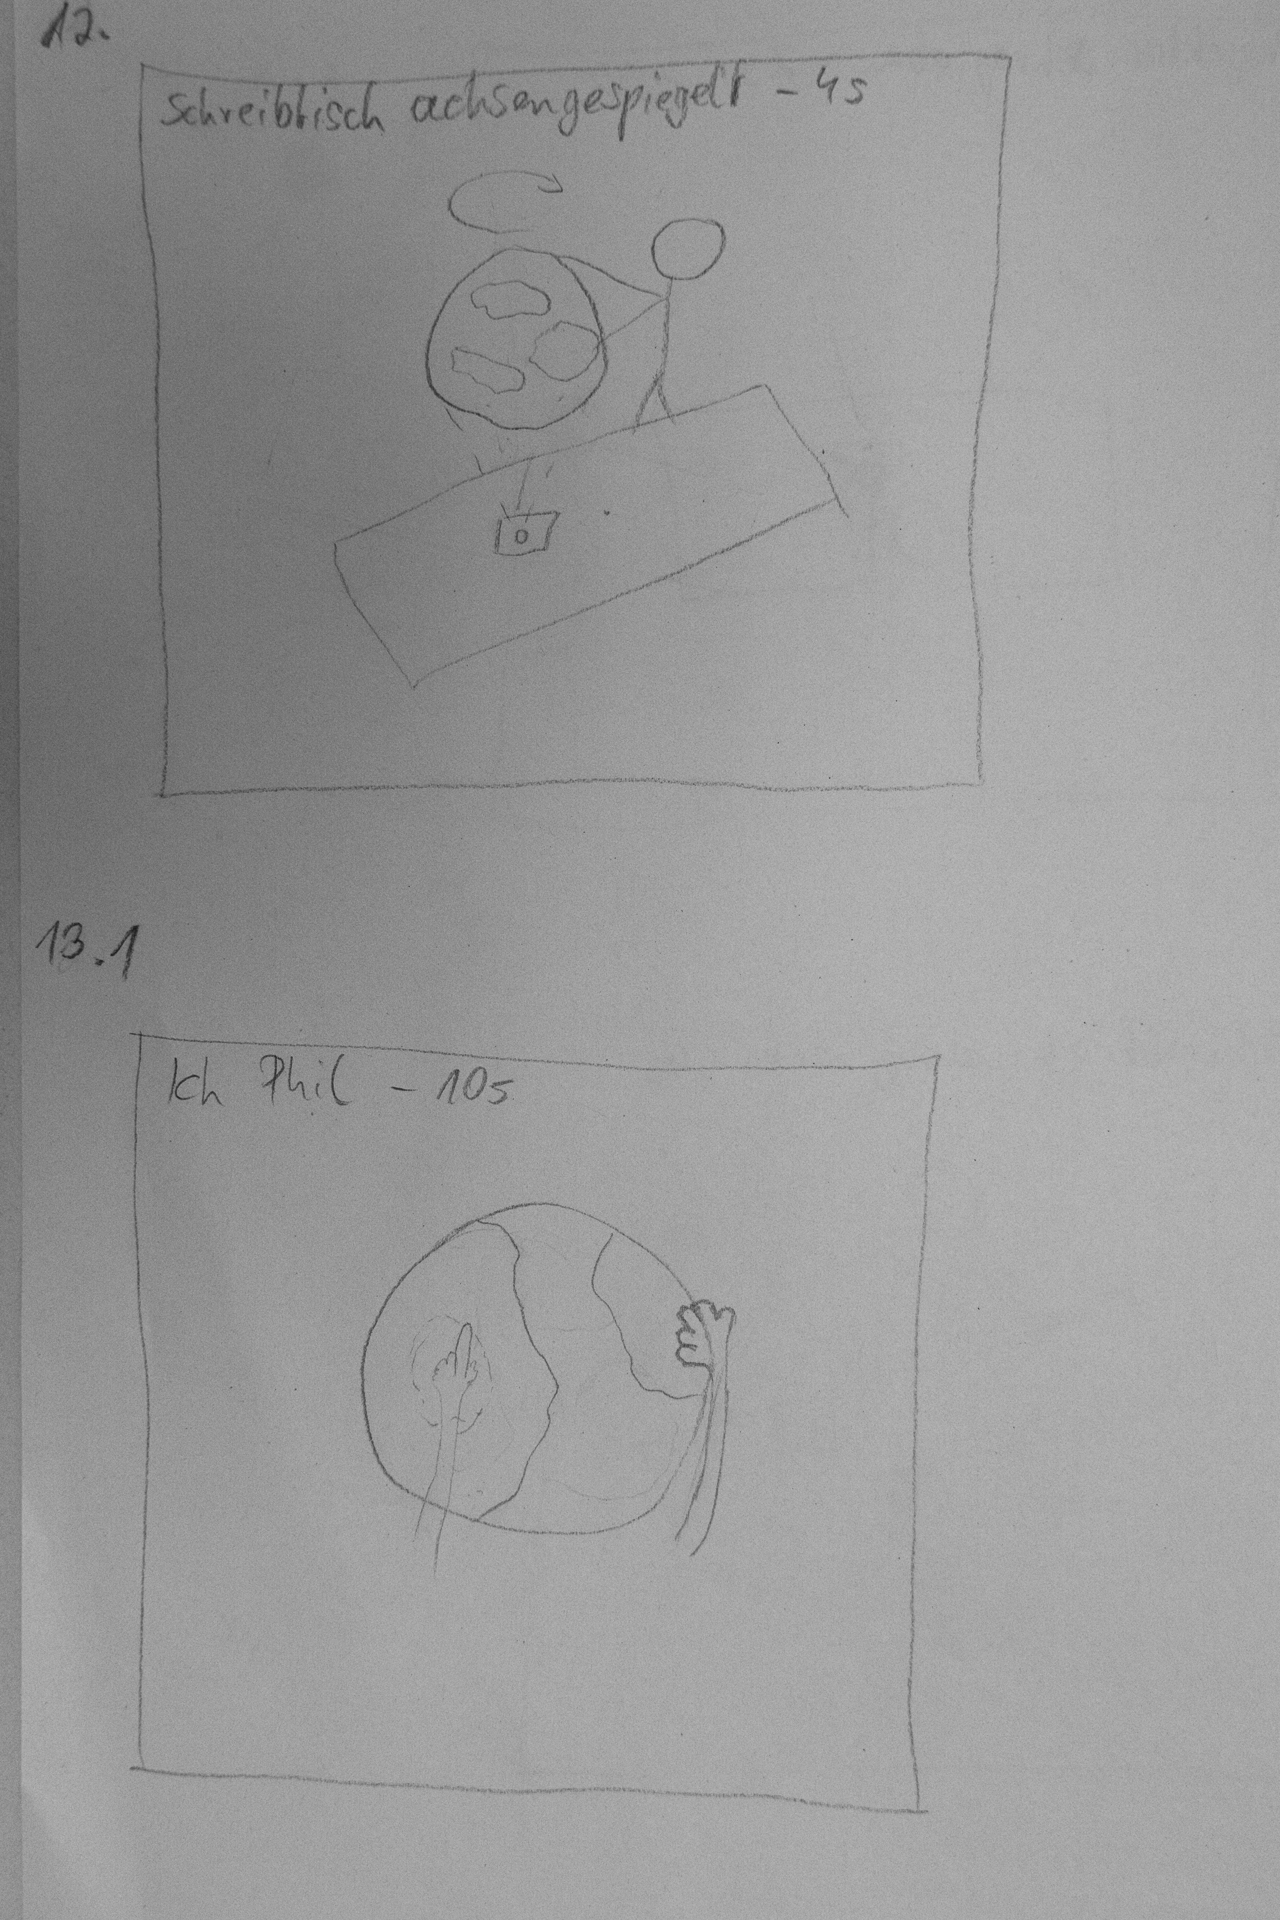 12.
Schreibtisch achsengespiegelt - 4s
13.1
Ich Phil - 10s